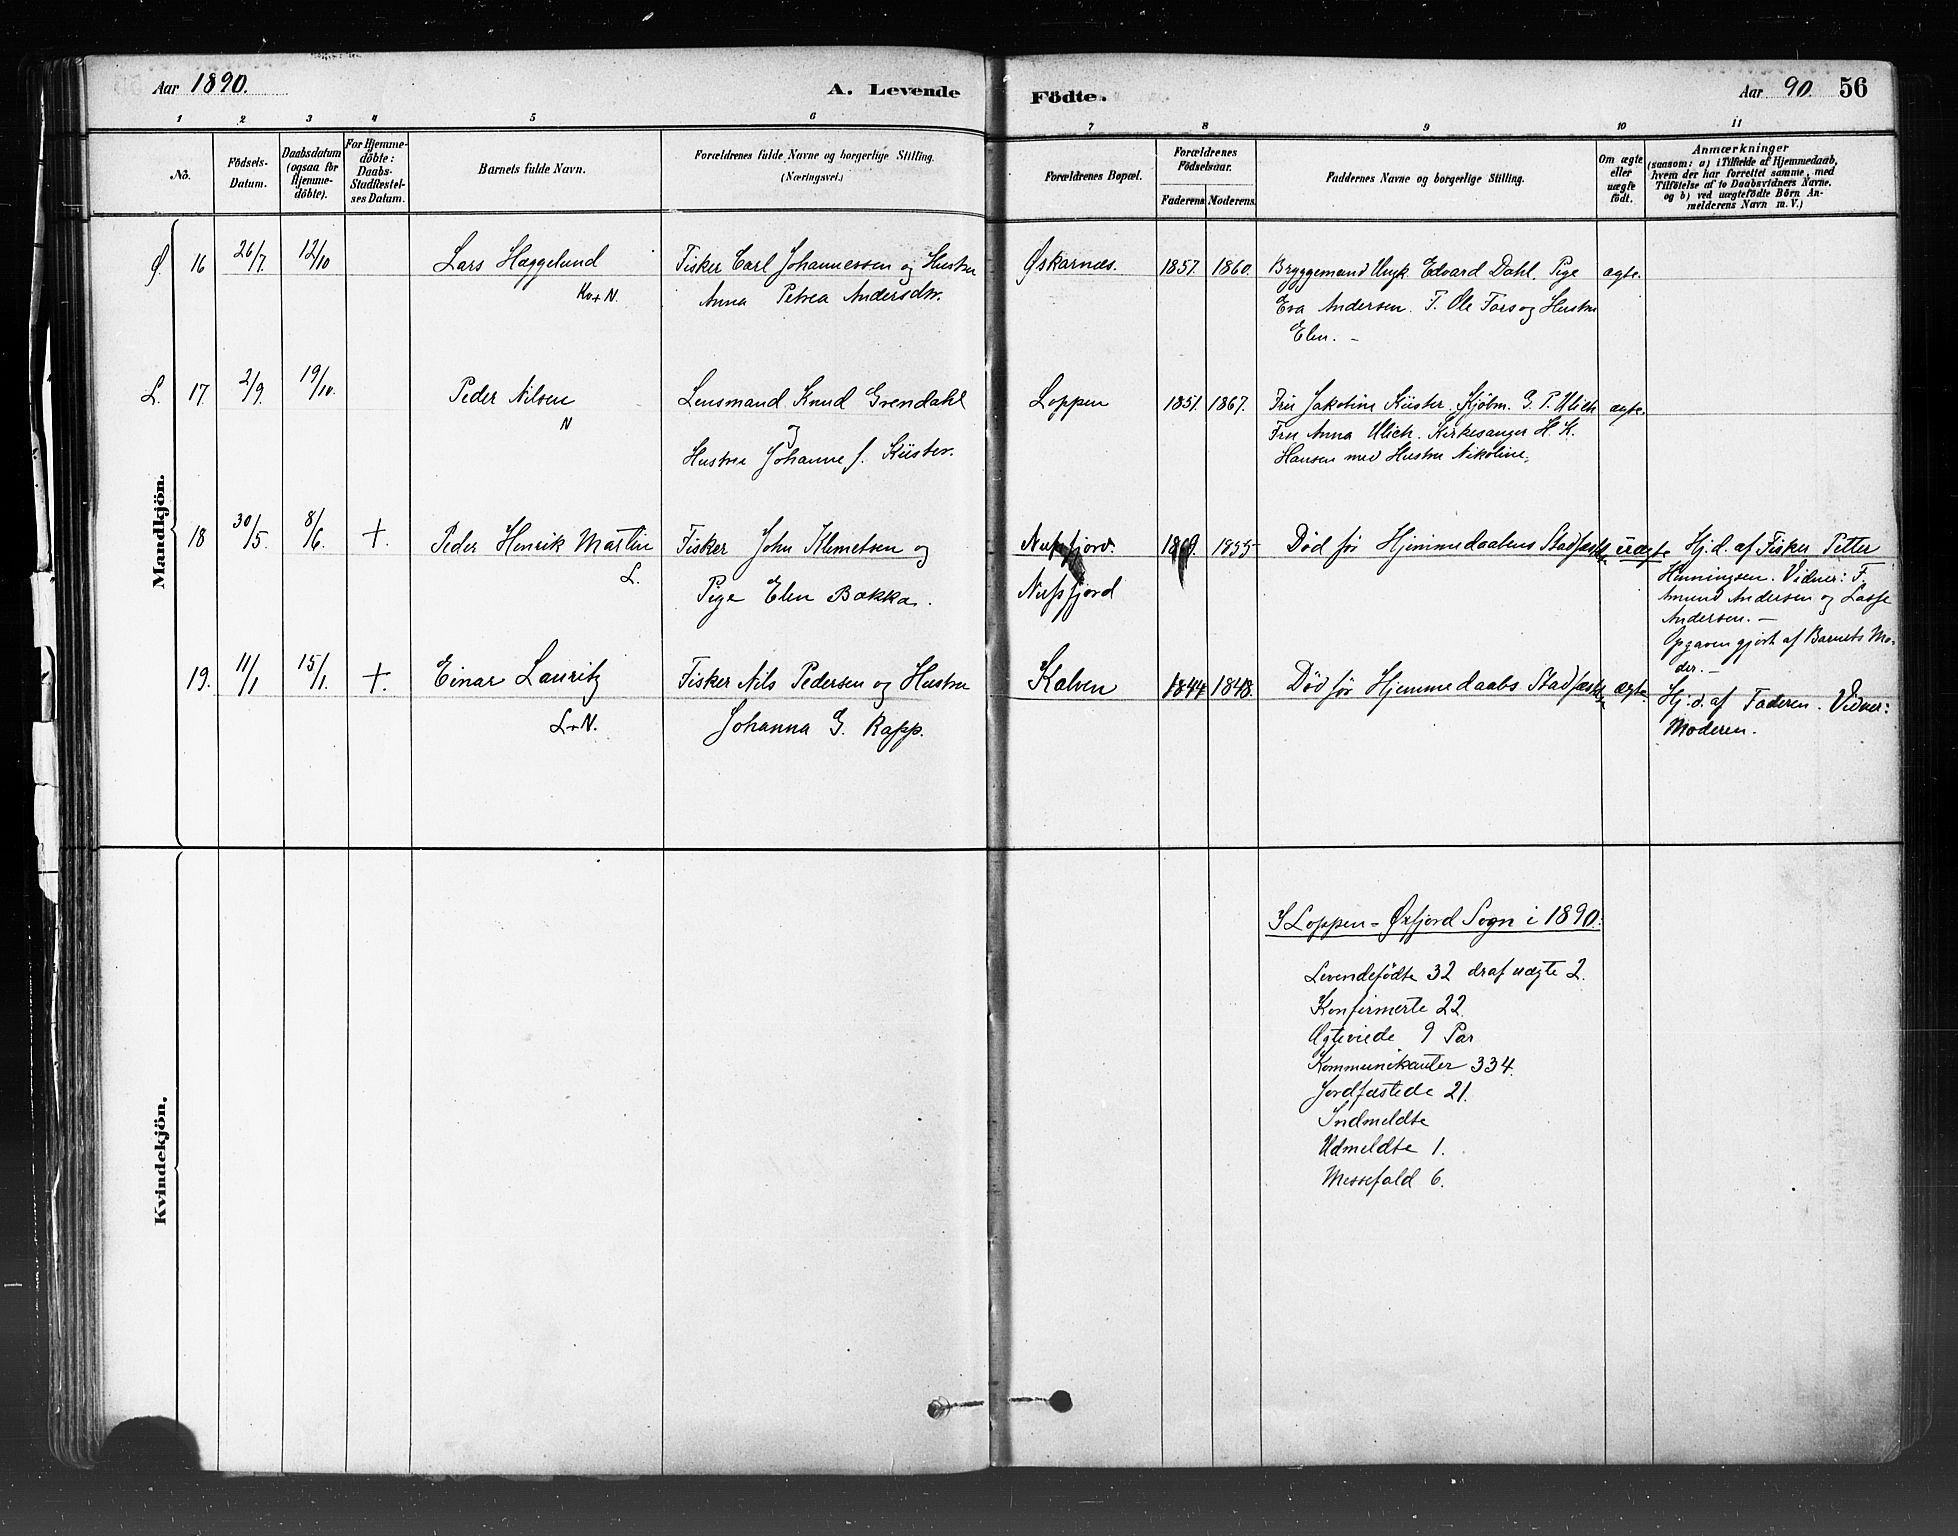 Aar 1890.
A. Levende
Födte.
Aar 90. 56
1 2 3 4 5 6 7 8 9 10 11
No.
Födsels-
Datum.
Daabsdatum
(ogsaa for
Hjemme-
döbte).
For Hjemme-
döbte:
Daabs-
Stadfæstel-
ses Datum.
Barnets fulde Navn.
Forældrenes fulde Navne og borgerlige Stilling.
(Næringsvei.)
Forældrenes Bopæl.
Forældrenes
Födselsaar.
Faderens. Moderens.
Faddernes Navne og borgerlige Stilling.
Om ægte
eller
uægte
födt.
Anmærkninger
(saasom: a) i Tilfælde af Hjemmedaab,
hvem der har forrettet samme, med
Tilföielse af to Daabsvidners Navne.
og b) ved uægtefödte Börn An-
melderens Navn m. V.)
Mandkjön.
Ø. 16 26/7 12/10
Lars Hæggelund
Kv+N.
Fisker Carl Johannessen og Hustru
Anna Petrea Andersdtr.
Øskarnæs. 1857. 1860.
Bryggemand Edvard Dahl. Pige
Eva Andersen. F. Ole Fors og Hustru
Elen. –
ægte.
L. 17 2/9. 19/10.
Peder Nilsen
N
Lensmand Knud Grendahl
og
Hustru Johanne J. Küster.
Loppen 1851. 1867.
Fru Jakobine Küster. Kjøbm. G. P. Ulich
Fru Anna Ulich. Kirkesanger H. K.
Hansen med Hustru Nikoline.
ægte.
18 30/5. 8/6. +.
Peder Henrik Martin
L.
Fisker John Klemetsen og
Pige Elen Bakka.
Nufsfjord.
Nufsfjord
1855
Død før Hjemmedaabens Stadfæst.
uægte
Hj.d. af Fisker Petter
Henningsen. Vidner: F.
Amund Andersen og Lasse
Andersen. –
Opgaven gjort af Barnets Mo-
der. –
19. 11/1 15/1. +.
Einar Lauritz
L+N.
Fisker Nils Pedersen og Hustru
Johanna G. Rapp.
Kalven 1844 1848.
Død før Hjemmedaabs Stadfæst.
ægte.
Hj.d. af Faderen. Vidner:
Moderen.
Kvindekjön.
I Loppen-Øxfjord Sogn i 1890:
Levendefødte 32 draf uægte 2.
Konfirmerte 22.
Ægteviede 9 Par
Kommunikanter 334.
Jordfæstede 21.
Indmeldte
Udmeldte 1.
Messefald 6.